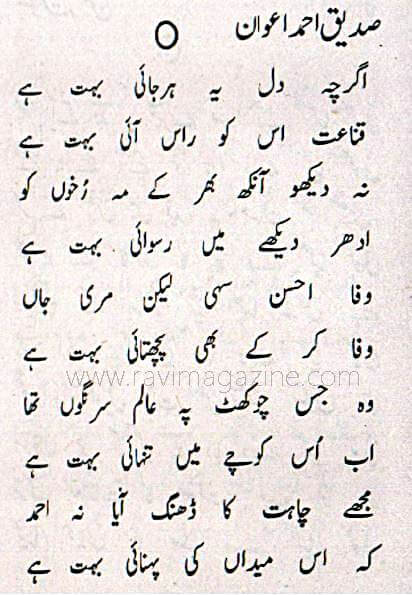 صدیق احمد اعوان
اگرچہ دل یہ ہرجائی بہت ہے
قناعت اس کو راس آئی بہت ہے
نہ دیکھو آنکھ بھر کے مہ رُخوں کو
ادھر دیکھے میں رسوائی بہت ہے
وفا احسن سہی لیکن مری جاں
وفا کر کے بھی پچھتائی بہت ہے
www.ravimagazine.com
وہ جس چوکھٹ پہ عالم سرنگوں تھا
اب اُس کوچے میں تنہائی بہت ہے
مجھے چاہت کا ڈھنگ آیا نہ احمد
کہ اس میداں کی پہنائی بہت ہے